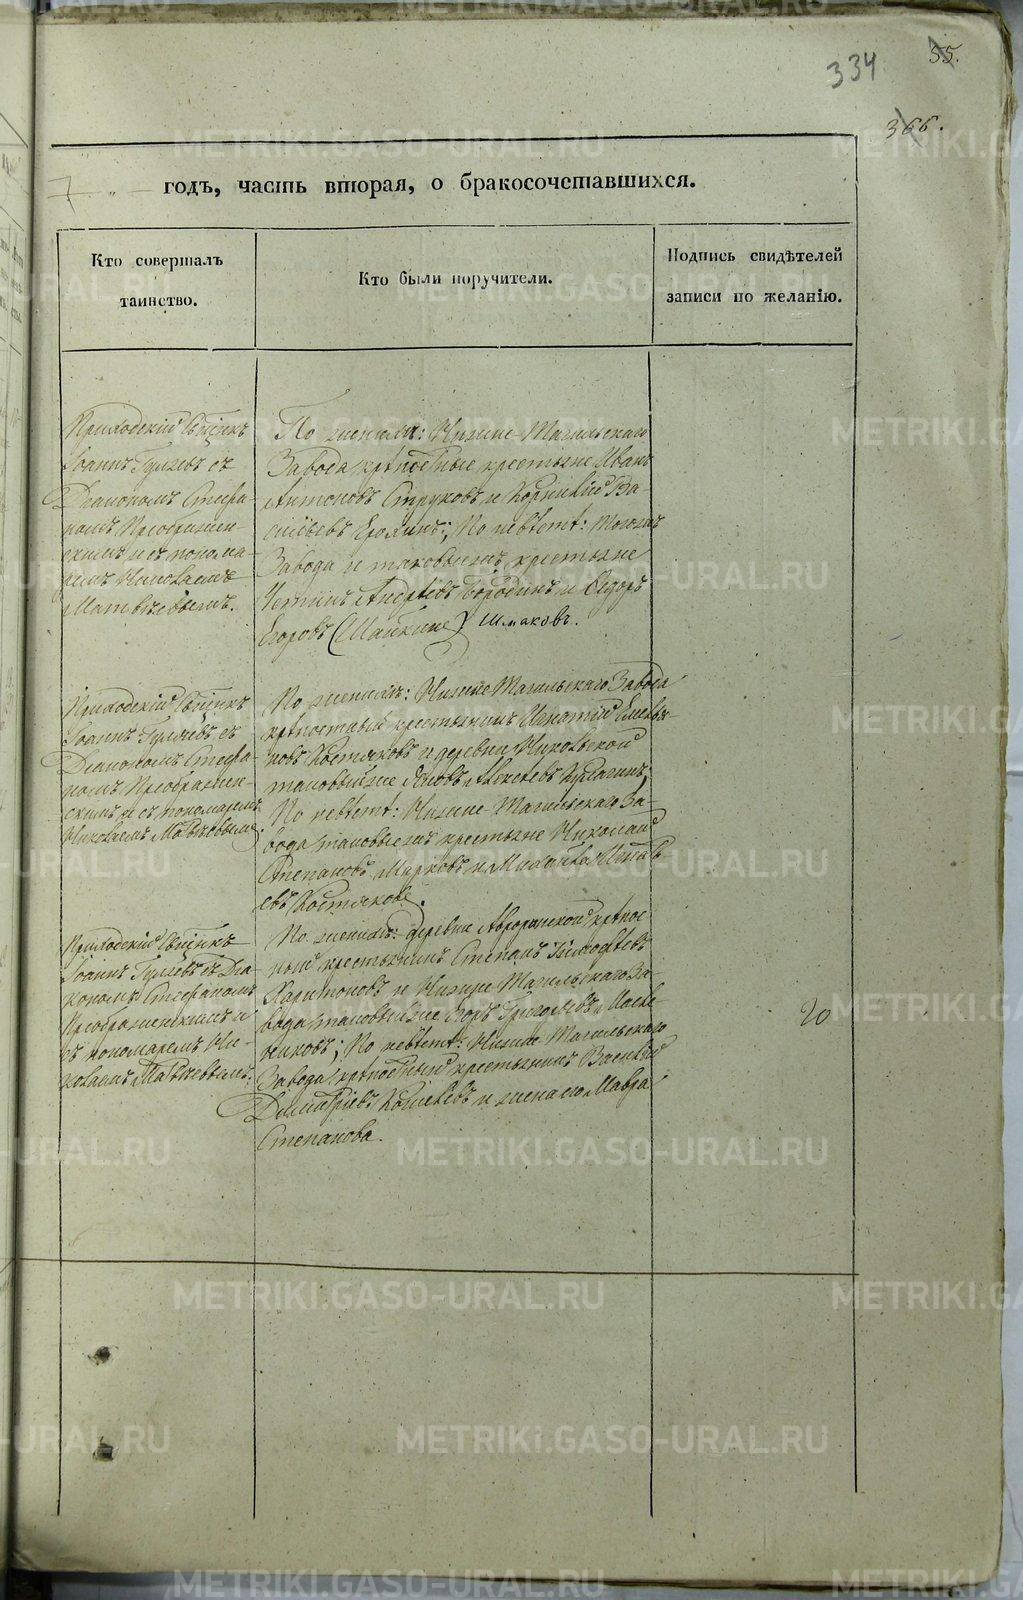 334
55.
366.
7 " годъ, часть вторая, о бракосочетавшихся.
Кто совершалъ
таинство.
Кто были поручители.
Подпись свидѣтелей
записи по желанію.
Приходскій Свщнкъ
Іоаннъ Гуляевъ съ
Діакономъ Стефа-
номъ Преображен-
скимъ и съ понома-
ремъ Николаемъ
Матвѣевымъ.
По женихѣ: Нижне-Тагильскаго
Завода крѣпостные крестьяне Иванъ
Антоновъ Струковъ и Корнилій Ва-
сильевъ Ерохинъ; По невѣстѣ: Тогожъ
Завода и таковыежъ крестьяне
Устинъ Андреевъ Бородинъ и Ѳедоръ
Егоровъ (Шапкинъ) Шмаковъ.
Приходскій Свщнкъ
Іоаннъ Гуляевъ съ
Діакономъ Стефа-
номъ Преображен-
скимъ и съ пономаремъ
Николаемъ Матвѣевымъ.
По женихѣ: Нижне Тагильскаго Завода
крѣпостный крестьянинъ Игнатій Емелья-
новъ Костяковъ и деревни Никольской
таковый же Яковъ Алексѣевъ Кулагинъ;
По невѣстѣ: Нижне-Тагильскаго За-
вода таковыежъ крестьяне Николай
Степановъ Марковъ и
евъ Костяковъ.
Приходскій Свщнкъ
Іоаннъ Гуляевъ съ Діа-
кономъ Стефаномъ
Преображенскимъ и
съ пономаремъ Ни-
колаемъ Матвѣевымъ.
По женихѣ: деревни крѣпос-
ный крестьянинъ Степанъ Тимофѣевъ
Харитоновъ и Нижне Тагильскаго За-
вода таковый же Егоръ Григорьевъ
По невѣстѣ: Нижне-Тагильскаго
Завода крѣпостный крестьянинъ Василій
Димитріевъ Кошелевъ и жена его Мавра
Степанова.
20
METRIKI.GASO-URAL.RU